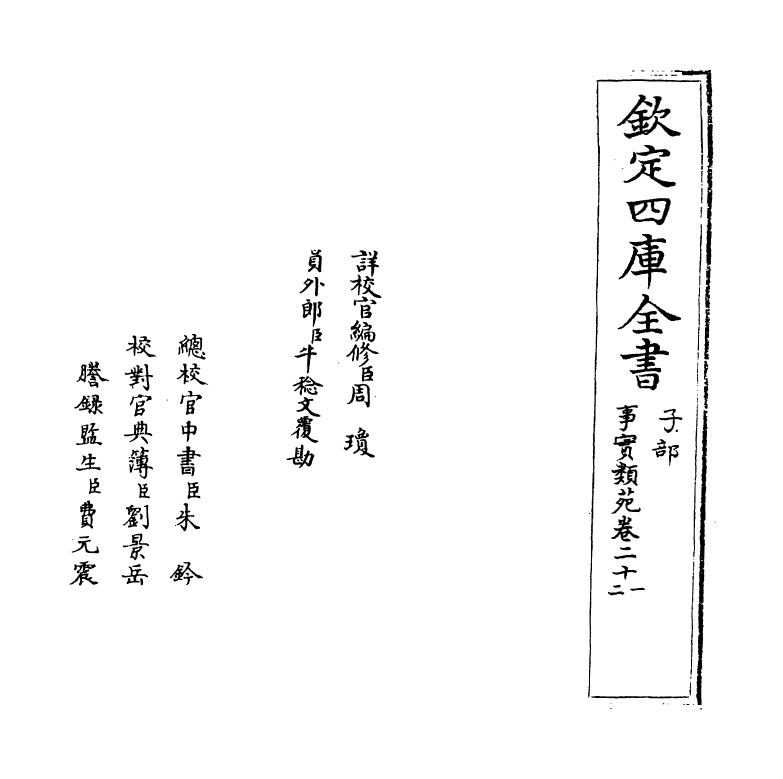 欽定四庫全書
子部
事實類苑卷二十一二
詳校官編修臣周瓊
員外郎臣牛稔文覆勘
總校官中書臣朱鈐
校對官典簿臣劉景岳
謄錄監生臣費元震